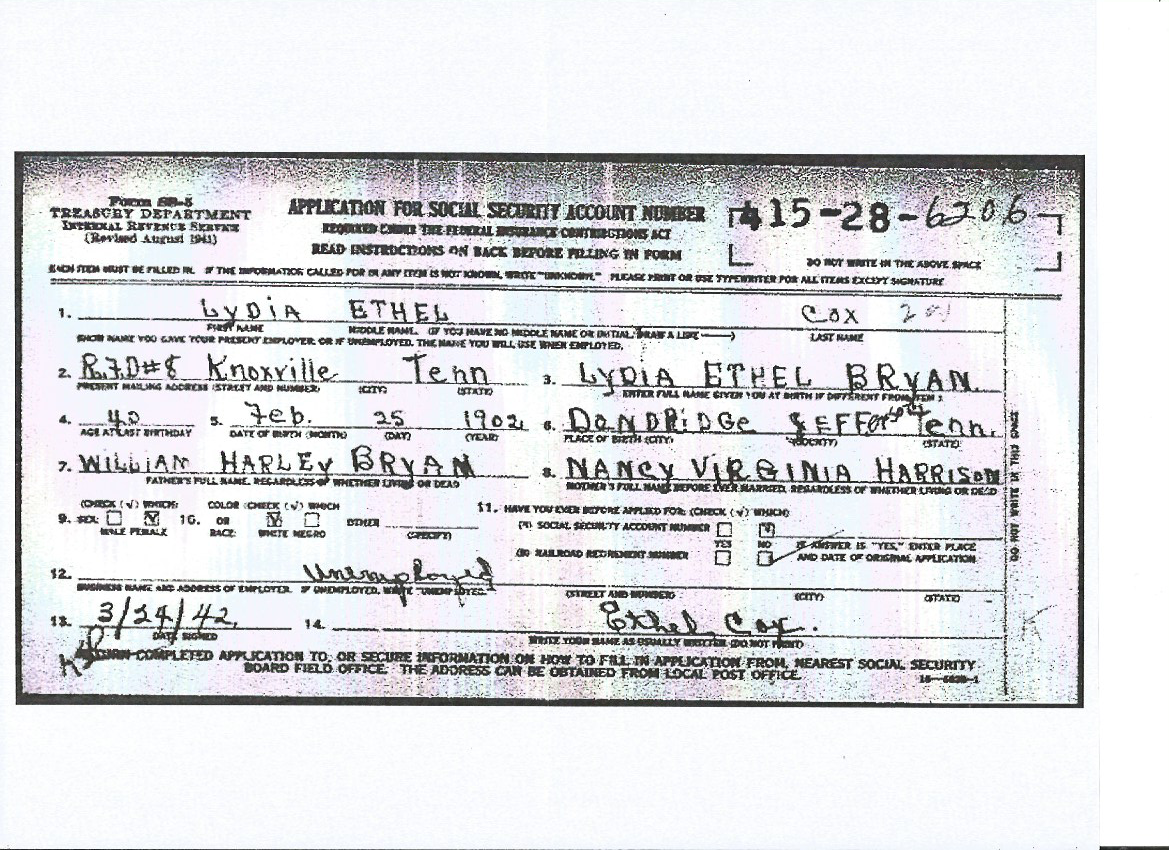 Form SS-5
TREASURY DEPARTMENT
INTERNAL REVENUE SERVICE
(Revised August 1941)
APPLICATION FOR SOCIAL SECURITY ACCOUNT NUMBER
REQUIRED UNDER THE FEDERAL INSURANCE CONTRIBUTIONS ACT
READ INSTRUCTIONS ON BACK BEFORE FILLING IN FORM
415-28-6206
DO NOT WRITE IN THE ABOVE SPACE
EACH ITEM MUST BE FILLED IN. IF THE INFORMATION CALLED FOR IN ANY ITEM IS NOT KNOWN, WRITE "UNKNOWN." PLEASE PRINT OR USE TYPEWRITER FOR ALL ITEMS EXCEPT SIGNATURE
1. LYDIA ETHEL COX
FIRST NAME MIDDLE NAME. (IF YOU HAVE NO MIDDLE NAME OR INITIAL, DRAW A LINE —) LAST NAME
SHOW NAME YOU GAVE YOUR PRESENT EMPLOYER, OR IF UNEMPLOYED, THE NAME YOU WILL USE WHEN EMPLOYED.
2. R.F.D#8 Knoxville Tenn 3. LYDIA ETHEL BRYAN
PRESENT MAILING ADDRESS (STREET AND NUMBER) (CITY) (STATE) ENTER FULL NAME GIVEN YOU AT BIRTH IF DIFFERENT FROM ITEM 1
4. 40 5. Feb. 25 1902 6. DANDRIDGE JEFFerson Tenn.
AGE AT LAST BIRTHDAY DATE OF BIRTH (MONTH) (DAY) (YEAR) PLACE OF BIRTH (CITY) (COUNTY) (STATE)
7. WILLIAM HARLEY BRYAN 8. NANCY VIRGINIA HARRISON
FATHER'S FULL NAME, REGARDLESS OF WHETHER LIVING OR DEAD MOTHER'S FULL NAME BEFORE EVER MARRIED, REGARDLESS OF WHETHER LIVING OR DEAD
(CHECK (√) WHICH) COLOR (CHECK (√) WHICH) 11. HAVE YOU EVER BEFORE APPLIED FOR: (CHECK (√) WHICH)
9. SEX: 10. OR OTHER (A) SOCIAL SECURITY ACCOUNT NUMBER
MALE FEMALE RACE: WHITE NEGRO (SPECIFY) YES NO IF ANSWER IS "YES," ENTER PLACE
(B) RAILROAD RETIREMENT NUMBER AND DATE OF ORIGINAL APPLICATION
12. Unemployed
BUSINESS NAME AND ADDRESS OF EMPLOYER. IF UNEMPLOYED, WRITE "UNEMPLOYED." (STREET AND NUMBER) (CITY) (STATE)
13. 3/24/42. 14. Ethel Cox.
DATE SIGNED WRITE YOUR NAME AS USUALLY WRITTEN (DO NOT PRINT)
RETURN COMPLETED APPLICATION TO, OR SECURE INFORMATION ON HOW TO FILL IN APPLICATION FROM, NEAREST SOCIAL SECURITY
BOARD FIELD OFFICE. THE ADDRESS CAN BE OBTAINED FROM LOCAL POST OFFICE.
DO NOT WRITE IN THIS SPACE